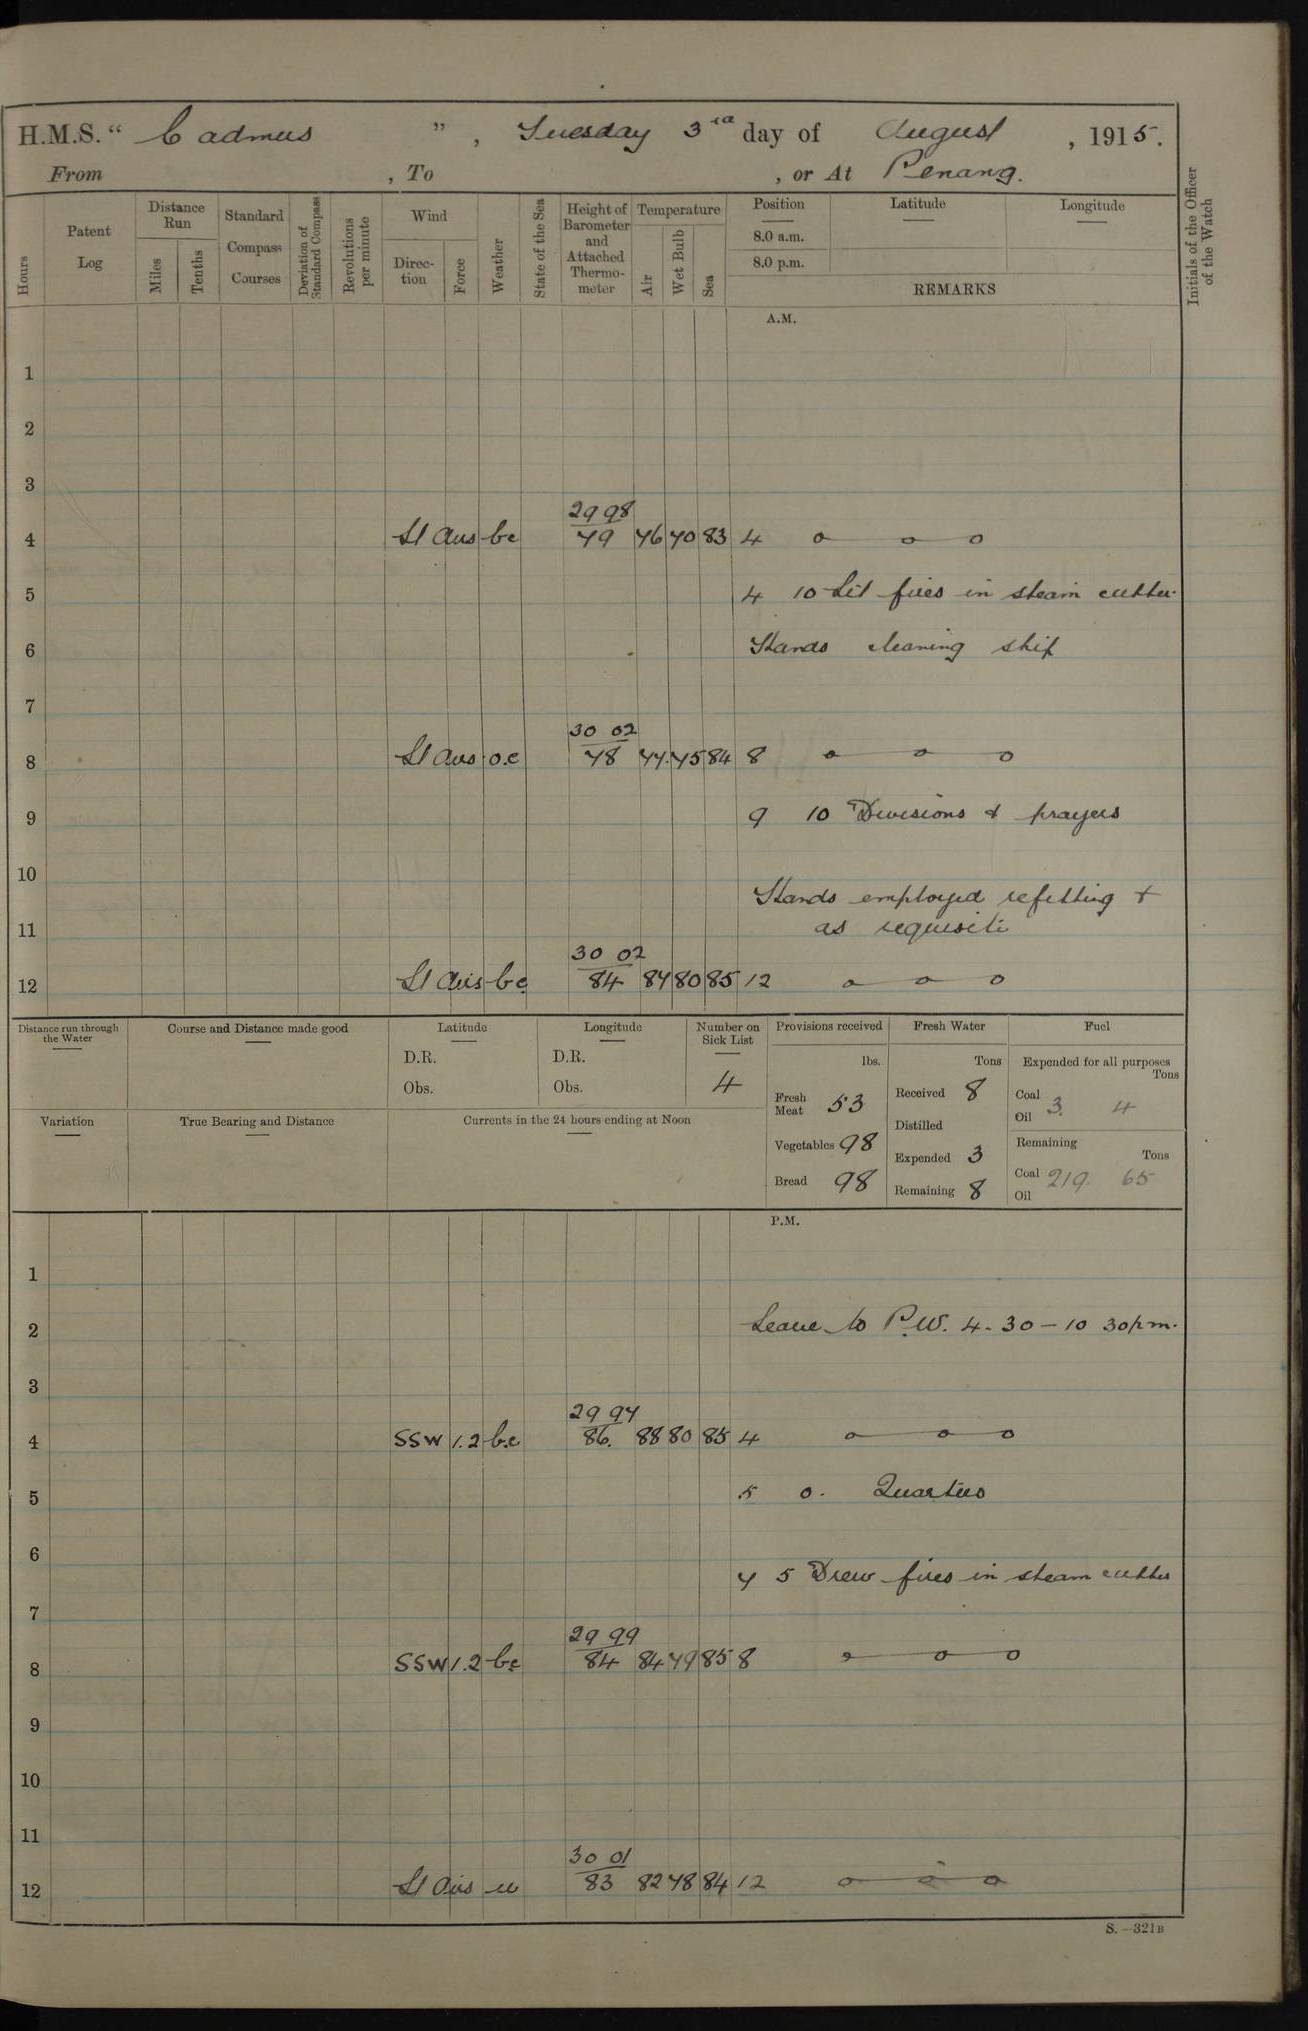 H.M.S. “ Cadmus ” , Tuesday 3rd day of August , 1915.
From , To , or At Penang.
Hours
Patent Log
Distance Run
Miles
Tenths
Standard Compass Courses
Deviation of Standard Compass
Revolutions per minute
Wind
Direc-tion
Force
Weather
State of the Sea
Height of Barometer and Attached Thermo-meter
Temperature
Air
Wet Bulb
Sea
Position
8.0 a.m.
8.0 p.m.
Latitude
Longitude
REMARKS
Initials of the Officer of the Watch
A.M.
1
2
3
29 98
4 Lt airs bc 79 76 70 83 4 o o o
5 4 10 Lit fires in steam cutter.
6 Hands cleaning ship
7
30 02
8 Lt airs o.c 78 77. 75 84 8 o o o
9 9 10 Divisions & prayers
10
Hands employed refitting +
11 as requisite
30 02
12 Lt airs bc 84 87 80 85 12 o o o
Distance run through the Water
Course and Distance made good
Latitude
D.R.
Obs.
Longitude
D.R.
Obs.
Number on Sick List
4
Provisions received
lbs.
Fresh Meat 53
Vegetables 98
Bread 98
Fresh Water
Tons
Received 8
Distilled
Expended 3
Remaining 8
Fuel
Expended for all purposes
Tons
Coal 3. 4
Oil
Remaining
Tons
Coal 219. 65
Oil
Variation
True Bearing and Distance
Currents in the 24 hours ending at Noon
P.M.
1
2 Leave to P.W. 4.30 – 10 30pm.
3
29 97
4 SSW 1.2 b.c 86. 88 80 85 4 o o o
5 5 0. Quarters
6
7 5 Drew fires in steam cutter
7
29 99
8 SSW 1.2 bc 84 84 79 85 8 o o o
9
10
11
30 01
12 Lt airs 83 82 78 84 12 o o o
S.—321B